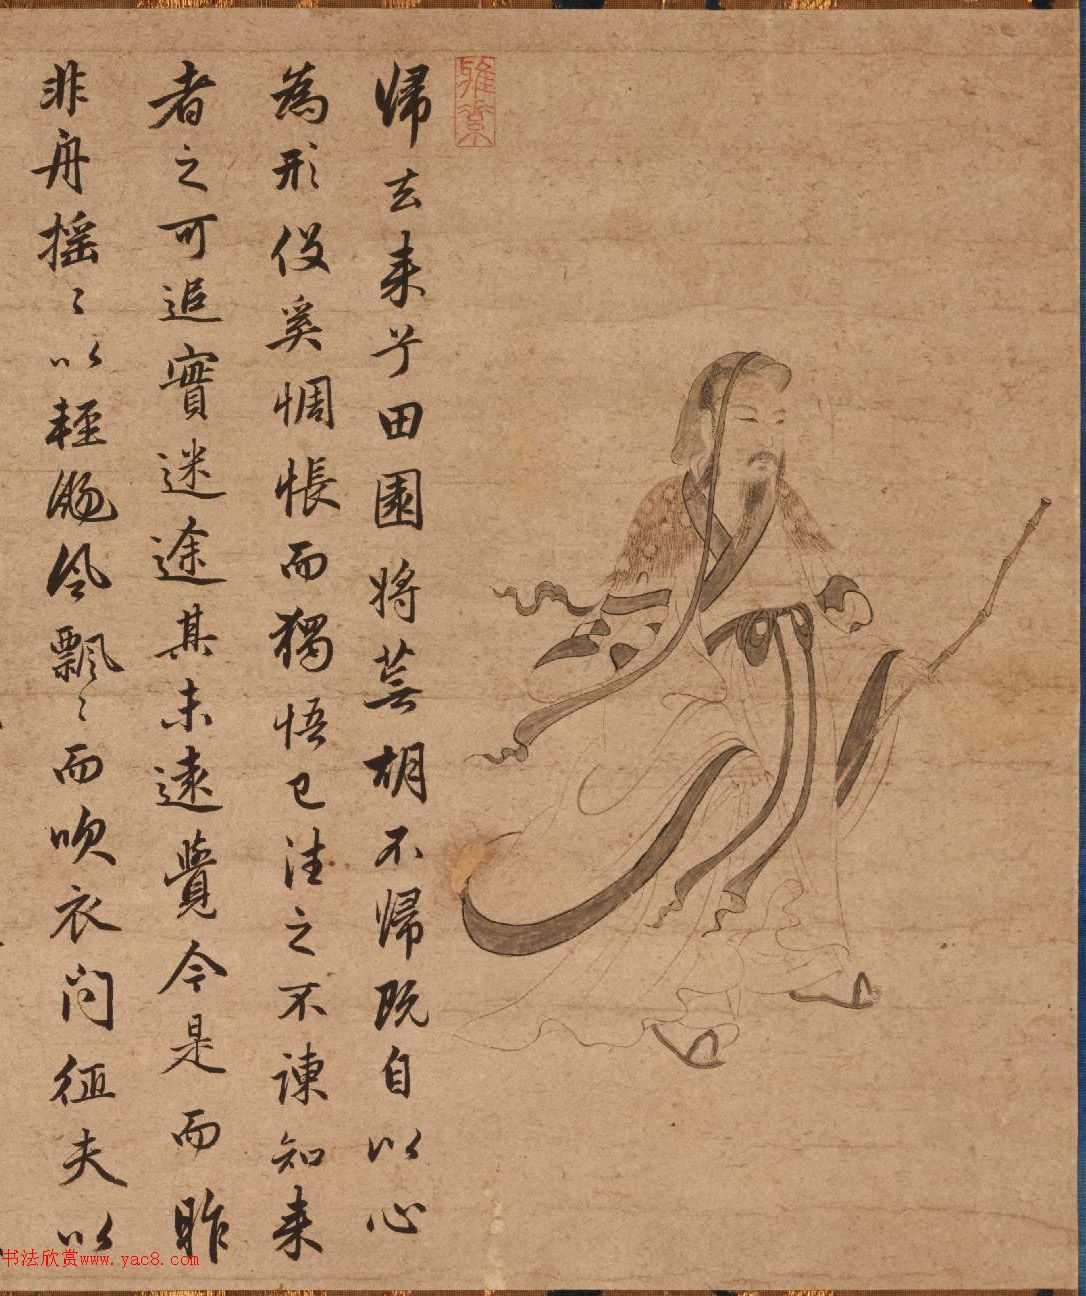 歸去来兮田園将蕪胡不歸既自以心
為形伇奚惆悵而獨悟已往之不諫知来
者之可追實迷途其未遠覺今是而昨
非舟摇〻以軽颺風飄〻而吹衣问征夫以
书法欣赏www.yac8.com